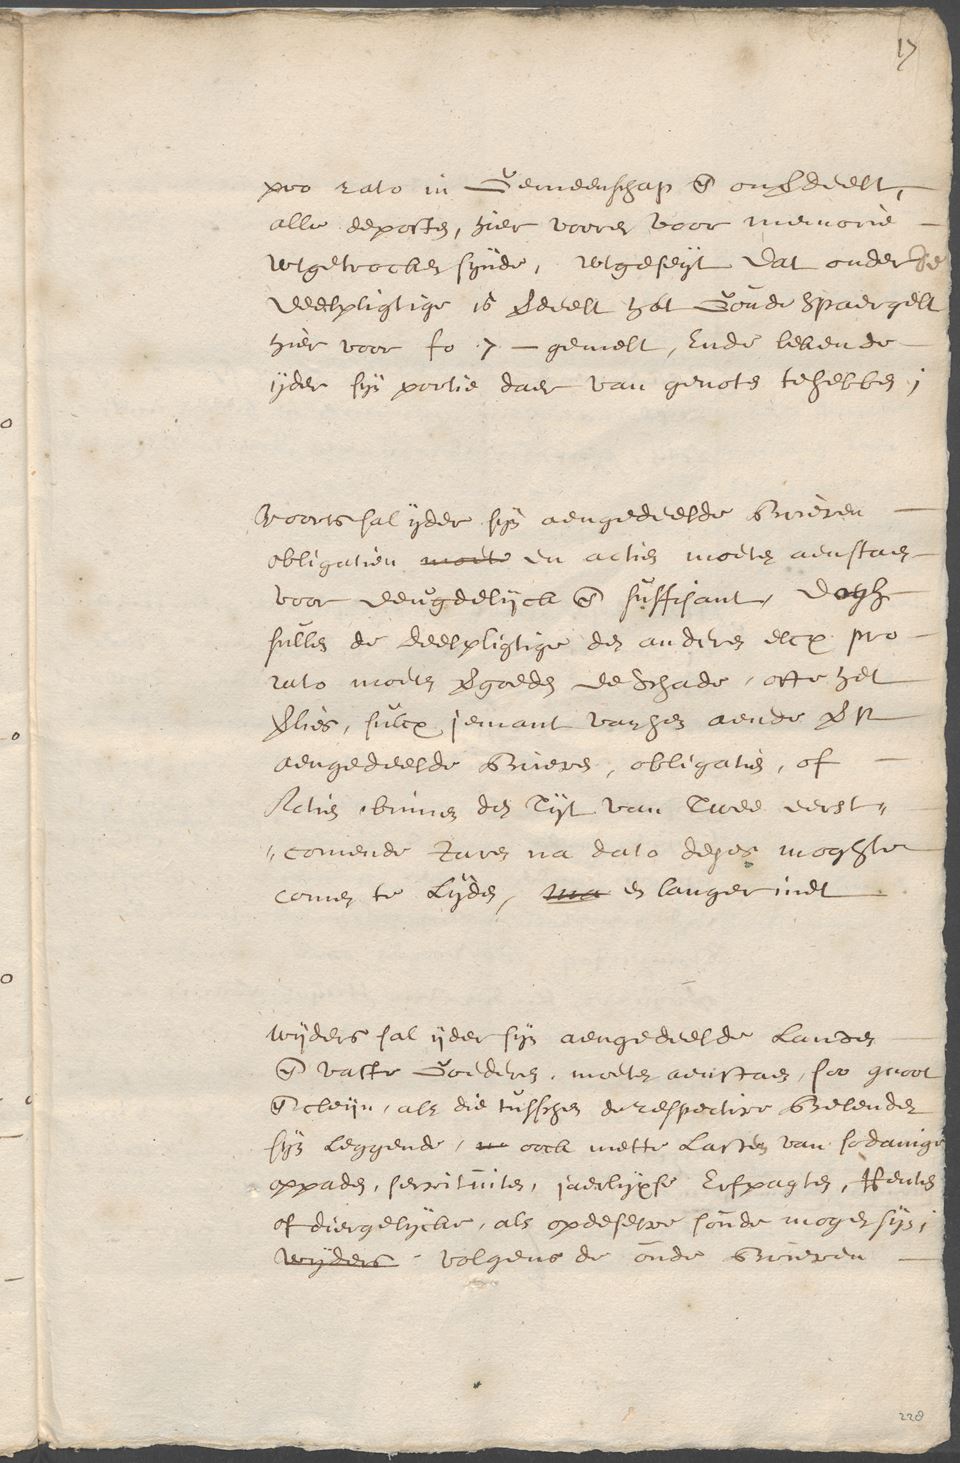 17
pro rato in Gemeenschap en onverdeelt,
alle deposten, hier vooren voor memorie
wtgetrocken sijnde, wtgeseijt dat onder de
deelpligtige is verdeelt het Goude Spaergelt
hier voor fo 7 gemelt, Ende bekende
ijder sijn portie daer van genoten te hebben;
Voorts sal ijder sijn aengedeelde Brieven
obligatien moete en actien moeten aenstaen
voor deugdelijck en suffisant, dogh
sullen de deelpligtige den anderen elcx pro
rato moeten vergoeden de Schade, ofte het
verlies, sulcx jemant van hen aende voorsz
aengedeelde Brieven, obligatien, of
Actien binnen den Tijt van Twee eerst,,
,,comende Jaren na dato deses moghte
comen te Lijden, ma en langer niet
wijders sal ijder sijn aengedeelde Landen
en vaste Goederen, moeten aenstaen, soo groot
en cleijn, als die tusschen de respective Belenden
sijn leggende, oock mette Lasten van sodanige
oppaden, servituiten, jaerlijxse Erfpagten, Renten
of diergelijcke, als opdeselve sonde mogen sijn;
wijders volgens de oude Brieven
228